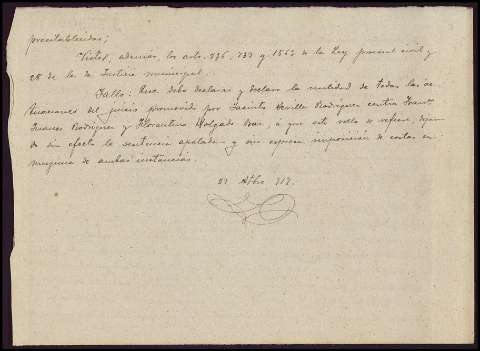 preestablecidas;
Vistos, además, los arts. 736, 737 y 1562 de la Ley procesal civil y
28 de la de Justicia municipal.
Fallo: Que debo declarar y declaro la nulidad de todas las ac-
tuaciones del juicio promovido por Jacinto Sevilla Rodríguez contra Franco
Rodríguez y Florentino Holgado, á que este rollo se refiere, dejan-
do sin efecto la sentencia apelada y sin expresa imposición de costas en
ninguna de ambas instancias.
917.